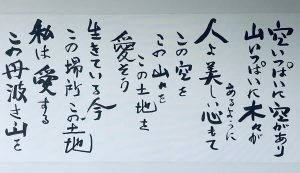 空いっぱいに空があり
山いっぱいに木々が
あるように
人よ美しい心もて
この空を
この山々を
この土地を
愛そう
生きている今
この場所この土地
私は愛する
この丹波さ山を